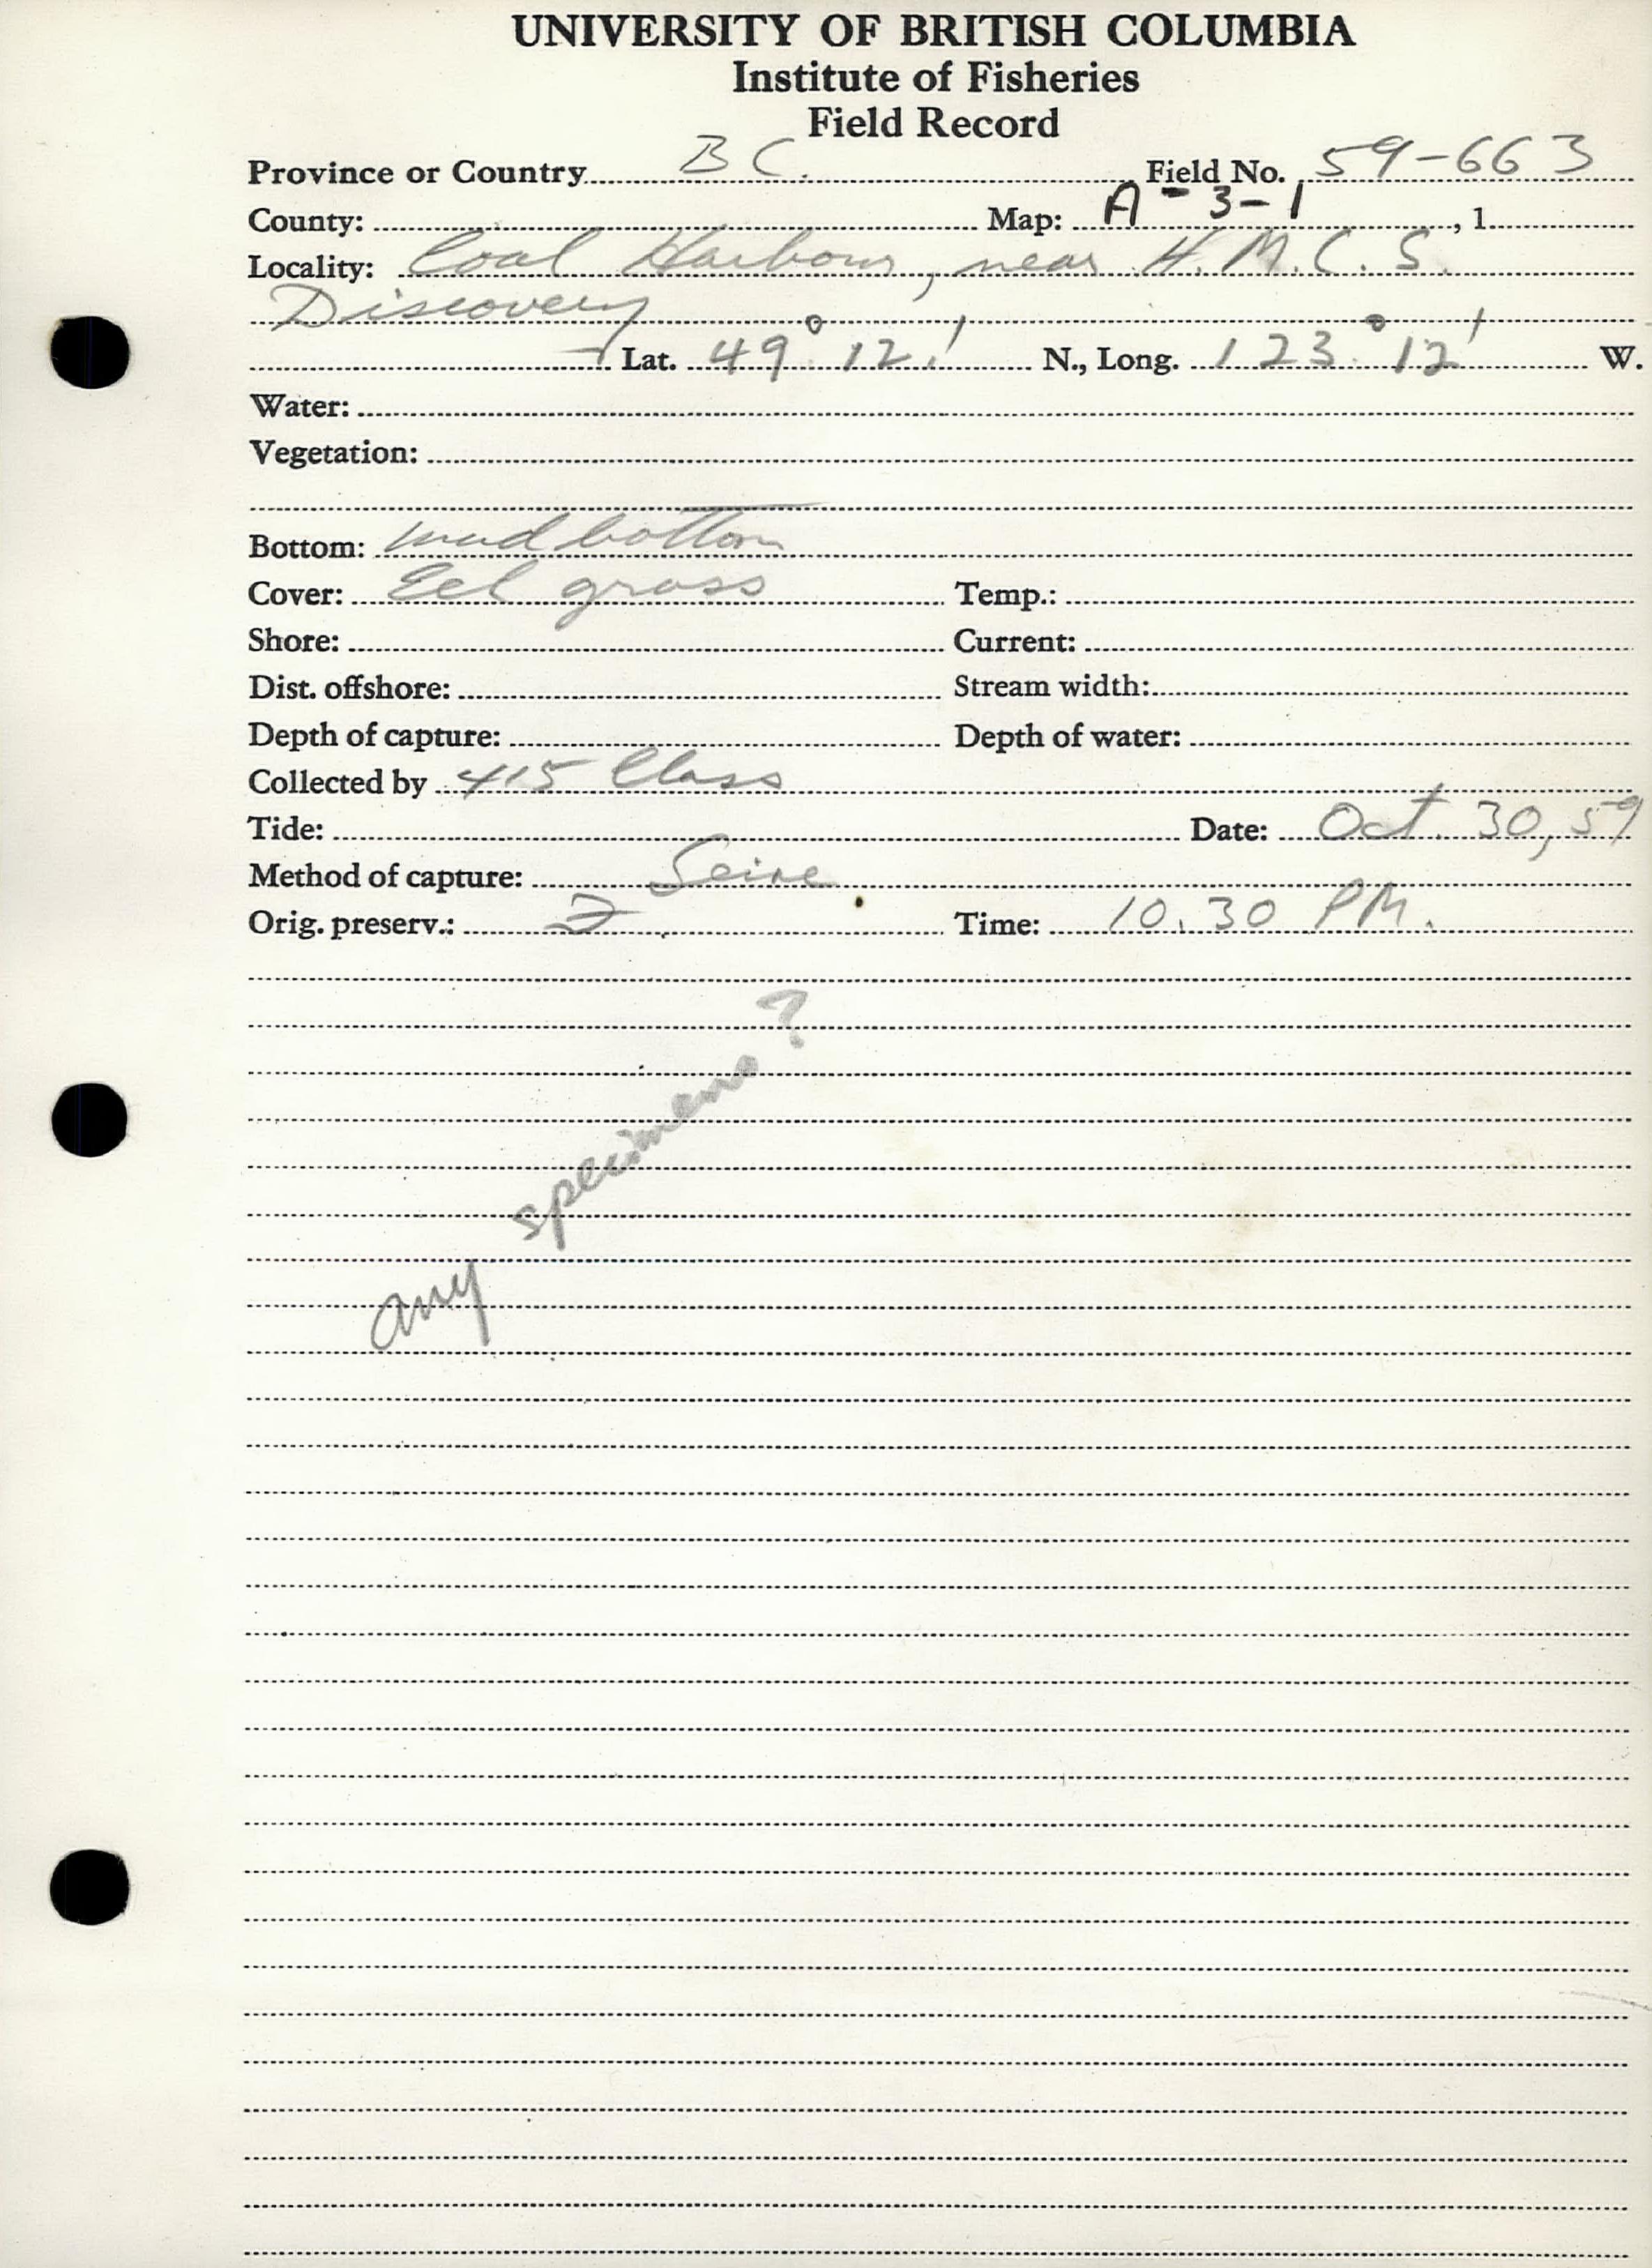 UNIVERSITY OF BRITISH COLUMBIA
Institute of Fisheries
Field Record
Province or Country B C. Field No. 59-663
County: Map: A-3-1, 1
Locality: Coal Harbour, near H.M.C.S.
Discovery
Lat. 49° 12' N., Long. 123° 12' W.
Water:
Vegetation:
Bottom: mud bottom
Cover: Eel grass Temp.:
Shore: Current:
Dist. offshore: Stream width:
Depth of capture: Depth of water:
Collected by 415 Class
Tide: Date: Oct. 30, 59
Method of capture: Seine
Orig. preserv.: Time: 10.30 PM.
any specimens?